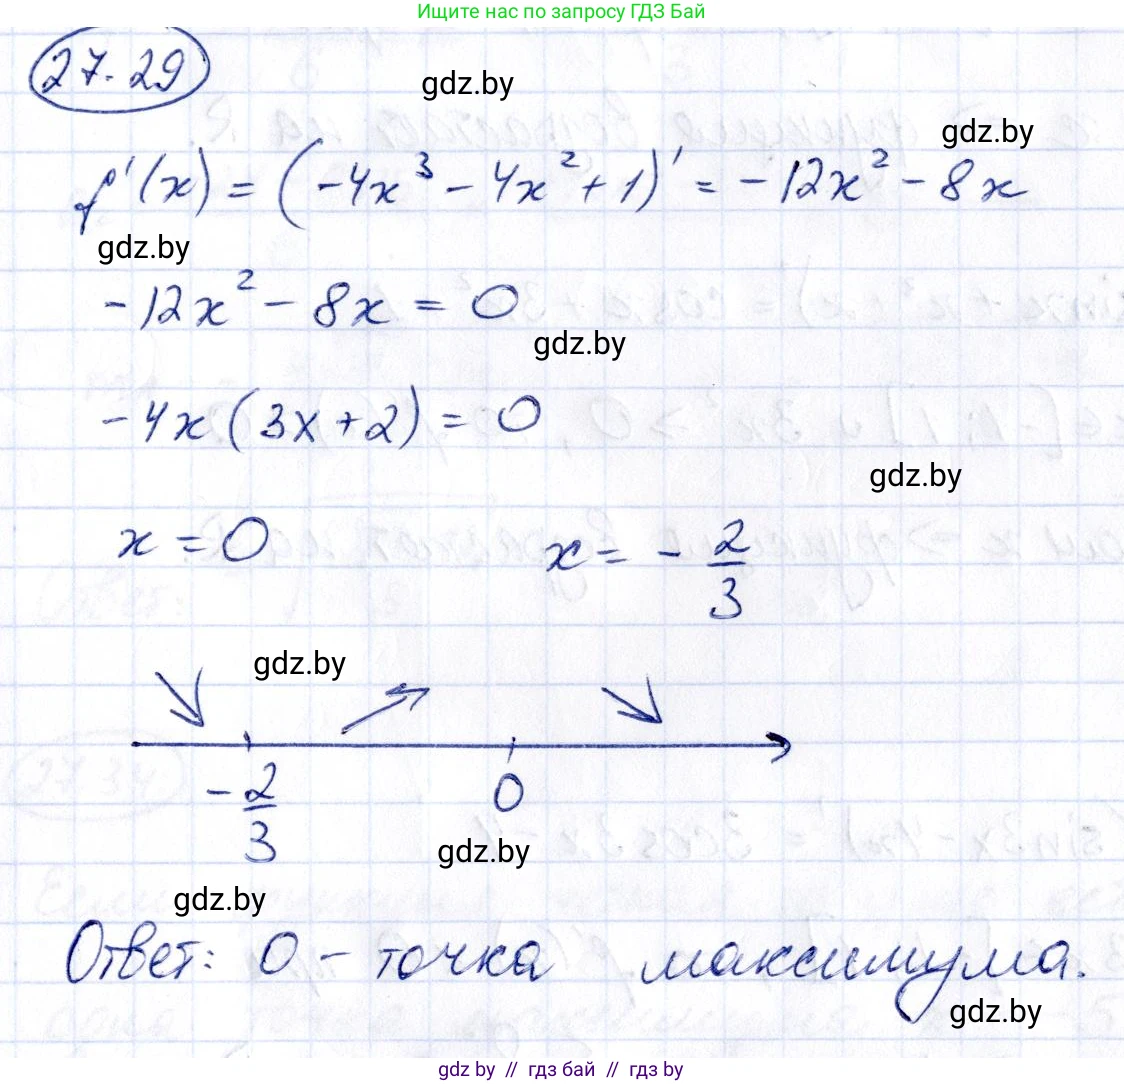 Ищите нас по запросу ГДЗ Бай
27.29
gdz.by
gdz.by
f'(x) = (-4x³ - 4x² + 1)' = -12x² - 8x
gdz.by
-12x² - 8x = 0
gdz.by
-4x(3x+2) = 0
gdz.by
x = 0 x = -2/3
gdz.by
-2/3 0
gdz.by
gdz.by
Ответ: 0 - точка максимума.
gdz.by
gdz.by // гдз бай // гдз by